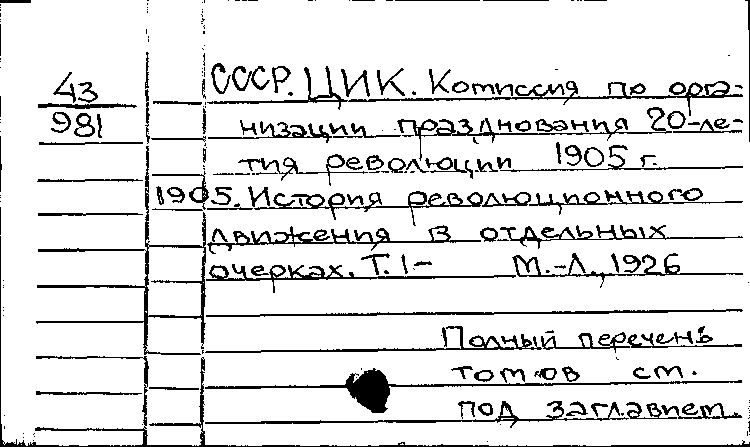 43
981
СССР. ЦИК. Комиссия по орга-
низации празднования 20-ле-
тия революции 1905 г.
1905. История революционного
движения в отдельных
очерках. Т. 1- М.-Л., 1926
Полный перечень
томов см.
под заглавием.